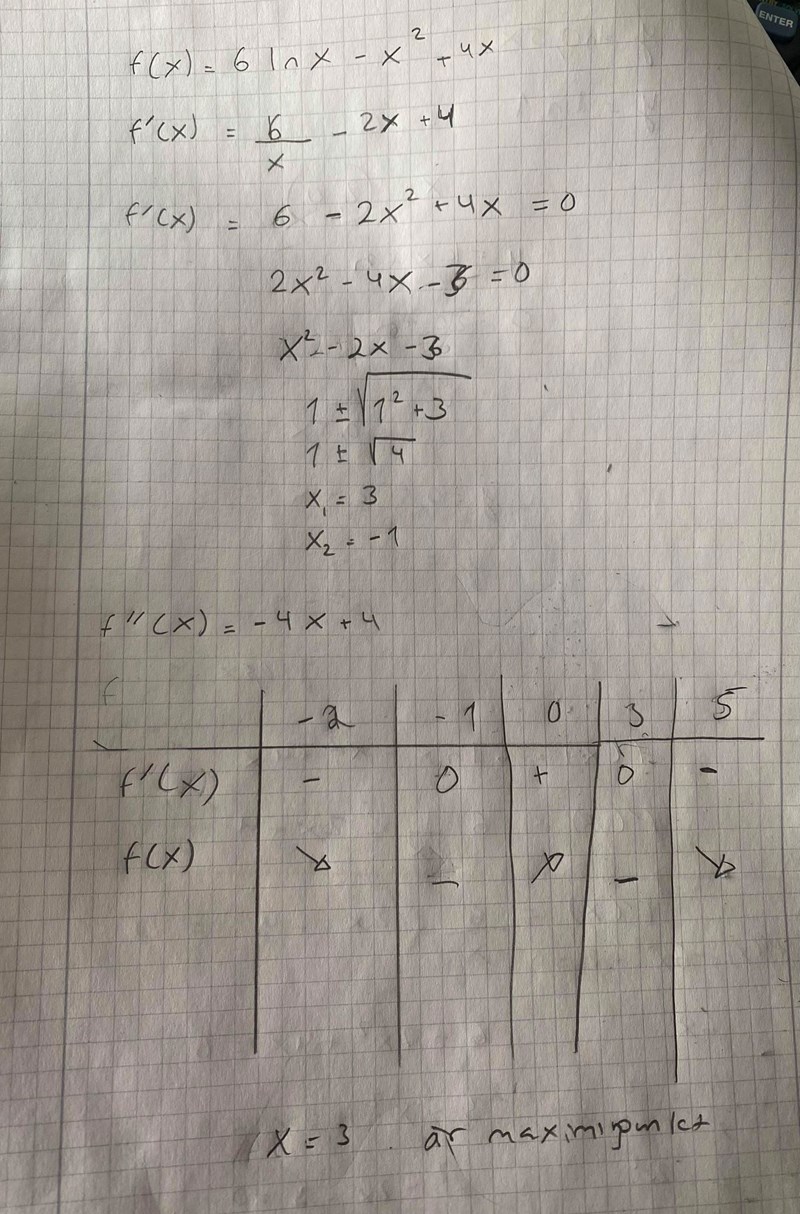 ENTER
f(x) = 6 ln x - x² + 4x
f'(x) = 6/x - 2x + 4
f'(x) = 6 - 2x² + 4x = 0
2x² - 4x - 6 = 0
x² - 2x - 3
1 ± √(1² + 3)
1 ± √4
x₁ = 3
x₂ = -1
f''(x) = -4x + 4
f
-2 -1 0 3 5
f'(x) - 0 + 0 -
f(x) ↘ _ ↗ _ ↘
x = 3 är maximipunkt